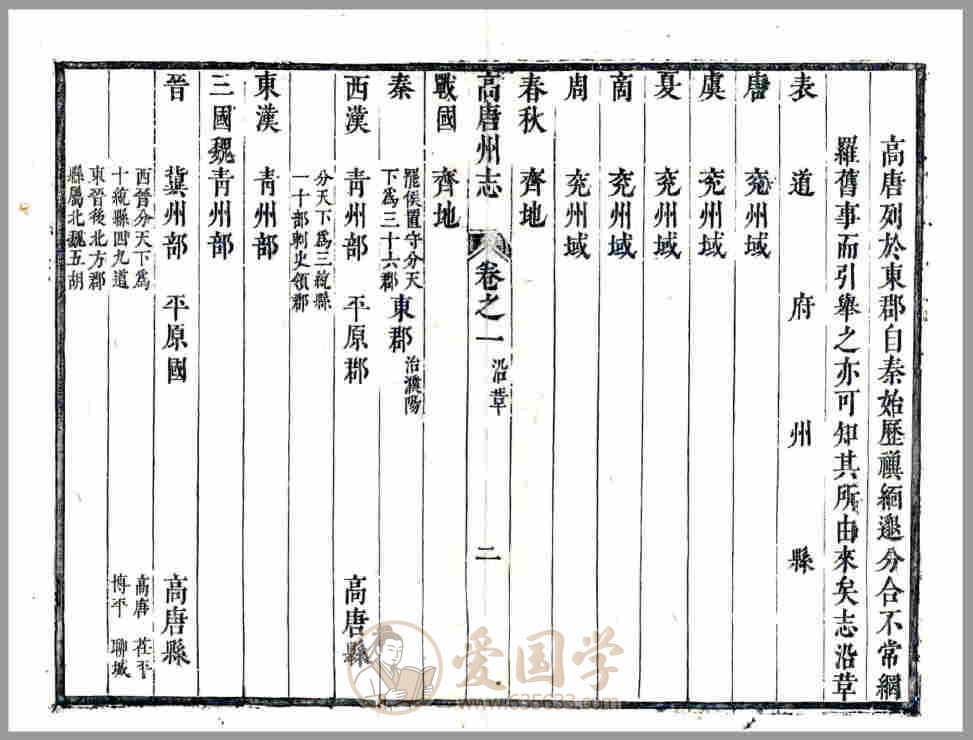 高唐列於東郡自秦始歷禩緬邈分合不常網
羅舊事而引舉之亦可知其所由來矣志沿革
表 道 府 州 縣
唐 兗州域
虞 兗州域
夏 兗州域
商 兗州域
周 兗州域
春秋 齊地
高唐州志 卷之一 沿革 二
戰國 齊地
秦 罷侯置守分天
下爲三十六郡 東郡 治濮陽
西漢 青州部 平原郡 高唐縣
分天下爲三統縣
一十部刺史領郡
東漢 青州部
三國魏 青州部
晉 冀州部 平原國 高唐縣
西晉分天下爲 高唐 茌平
十統縣四九道 博平 聊城
東晉後北方郡
縣屬北魏五胡
爱国学
www.635633.com